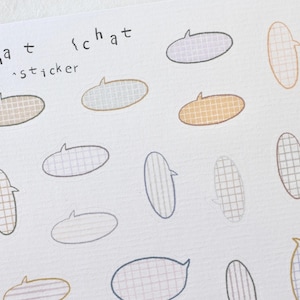 at chat
sticker